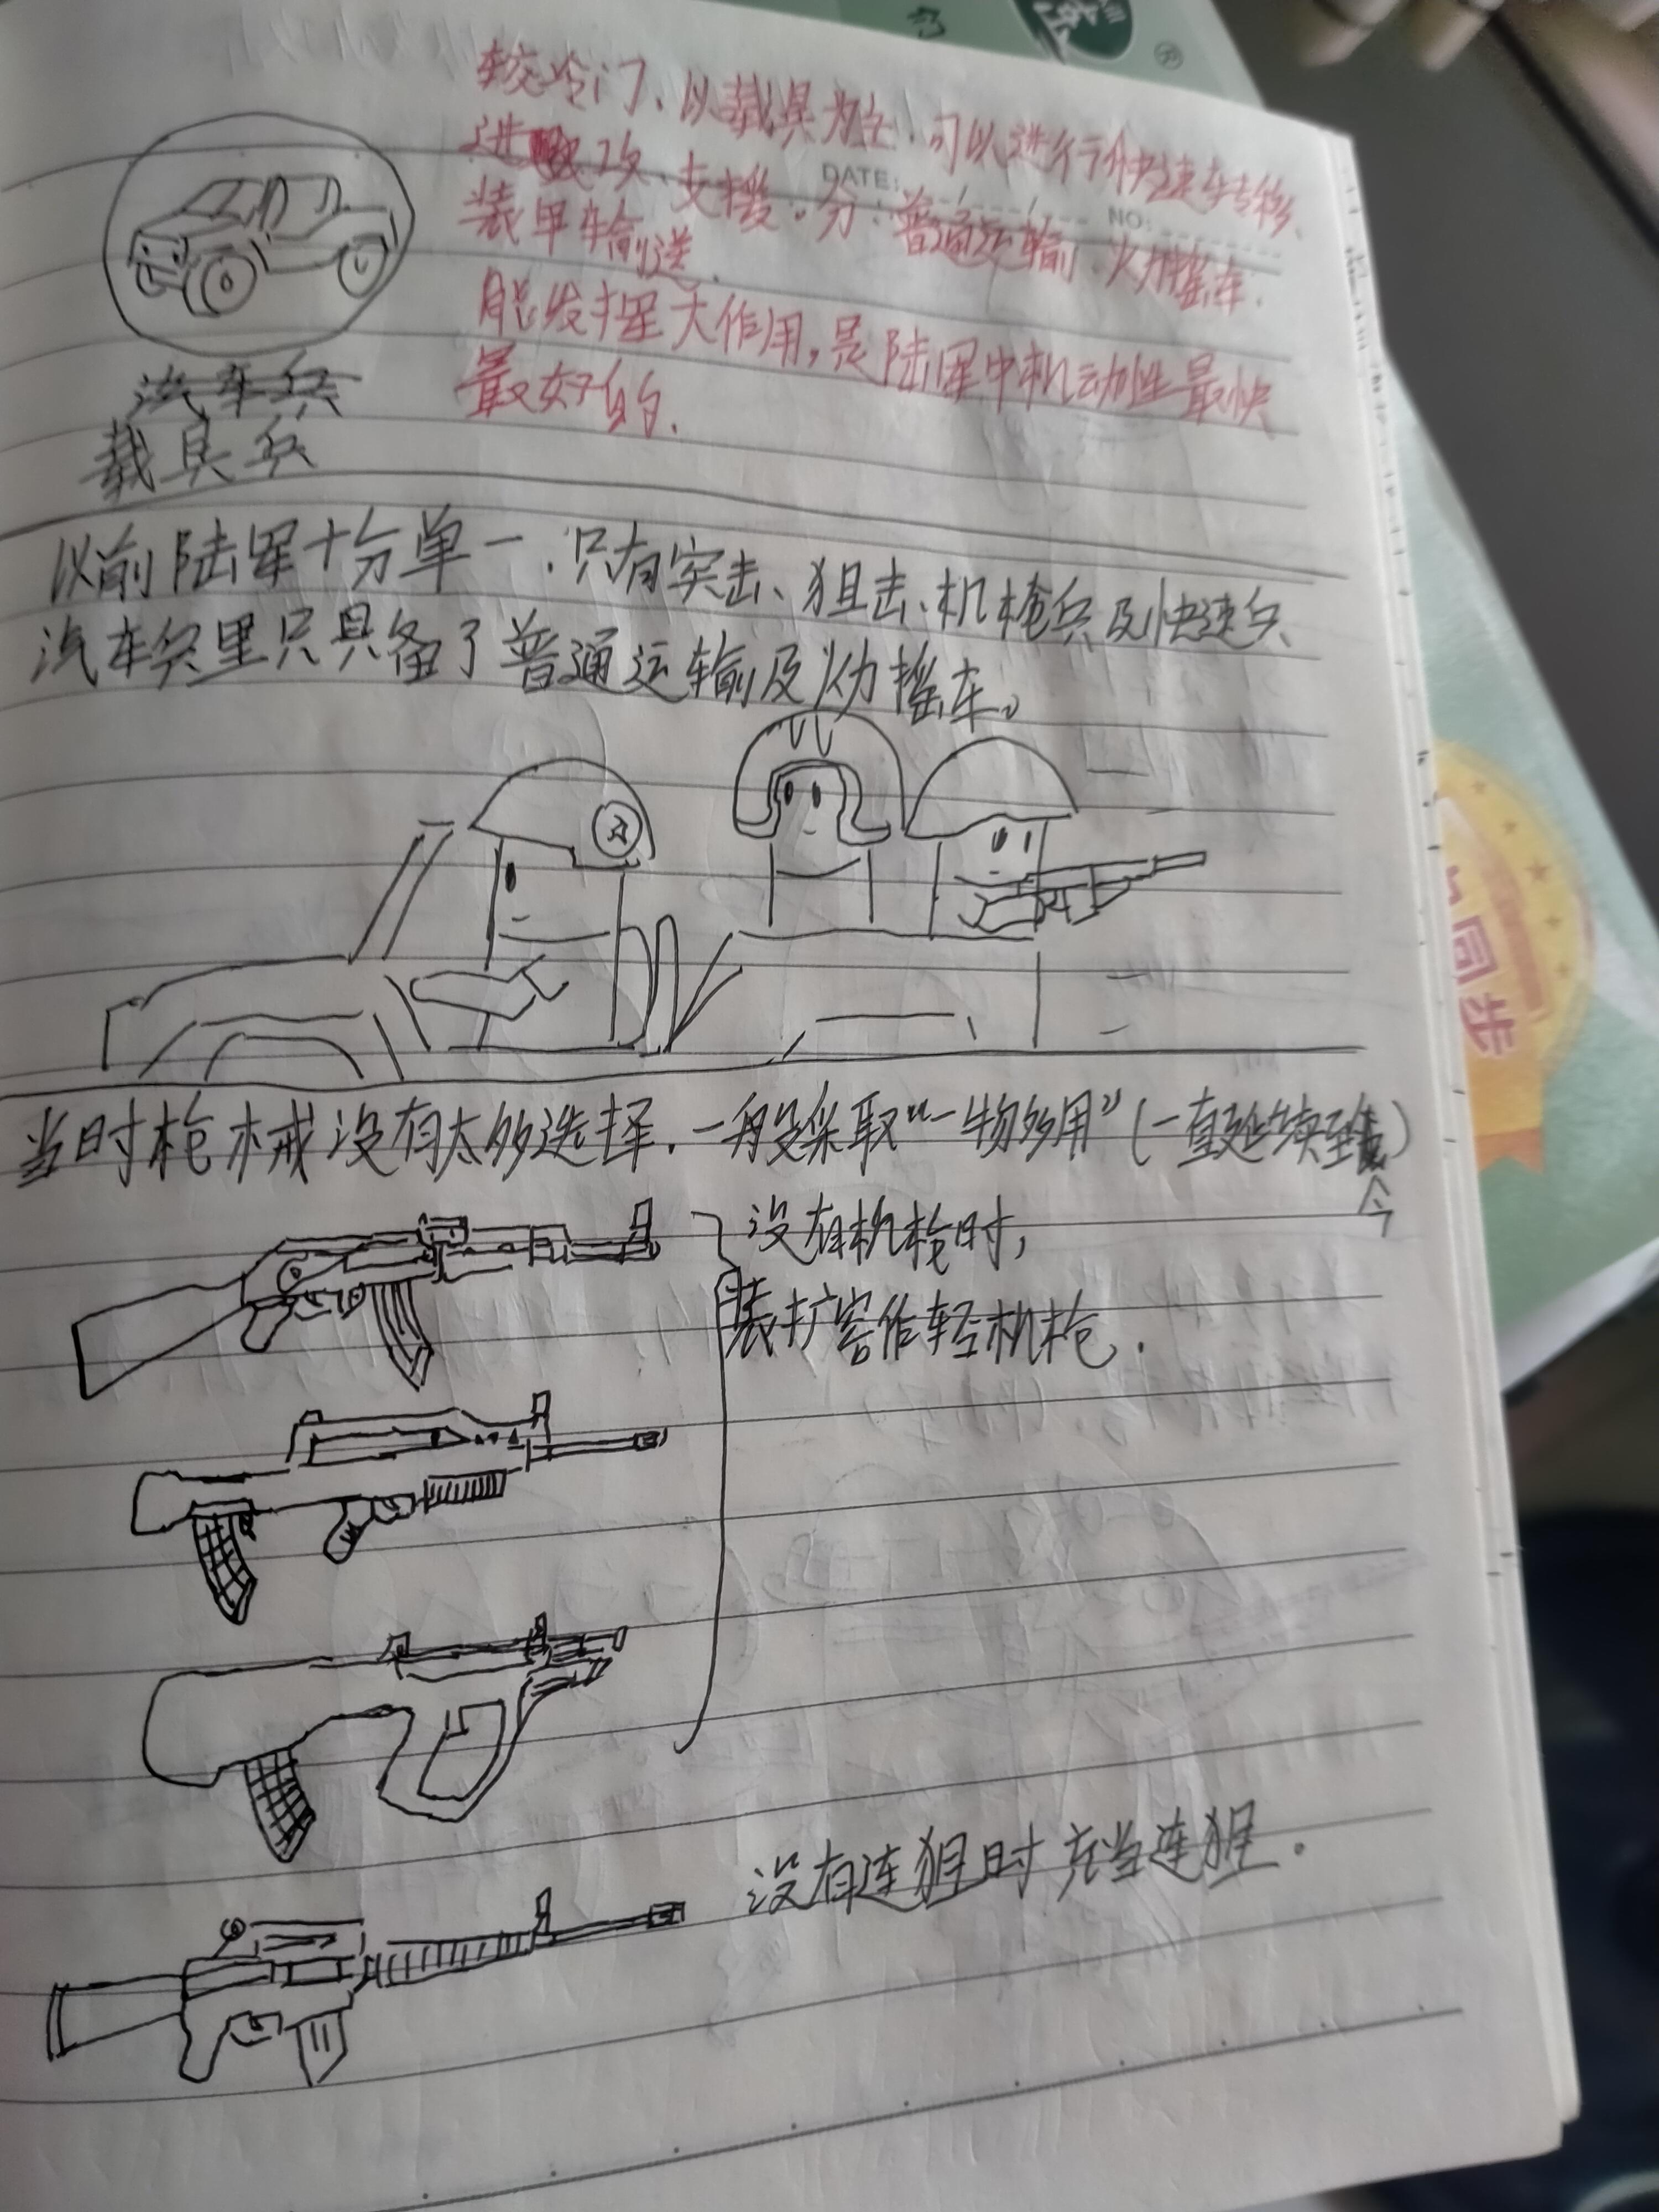 较冷门、以载具为主，可以进行快速转移、
进攻、支援。分：普通运输、火力摇车、
装甲输送.
DATE: / / NO:
能发挥大作用，是陆军中机动性最快
最好的.
汽车兵
载具兵
以前陆军十分单一.只有突击、狙击、机枪兵及快速兵
汽车兵里只具备了普通运输及火力摇车。
当时枪械没有太多选择.一般采取“一物多用”(一直延续至今)
没有机枪时,
装扩容作轻机枪.
没有连狙时充当连狙.
同步